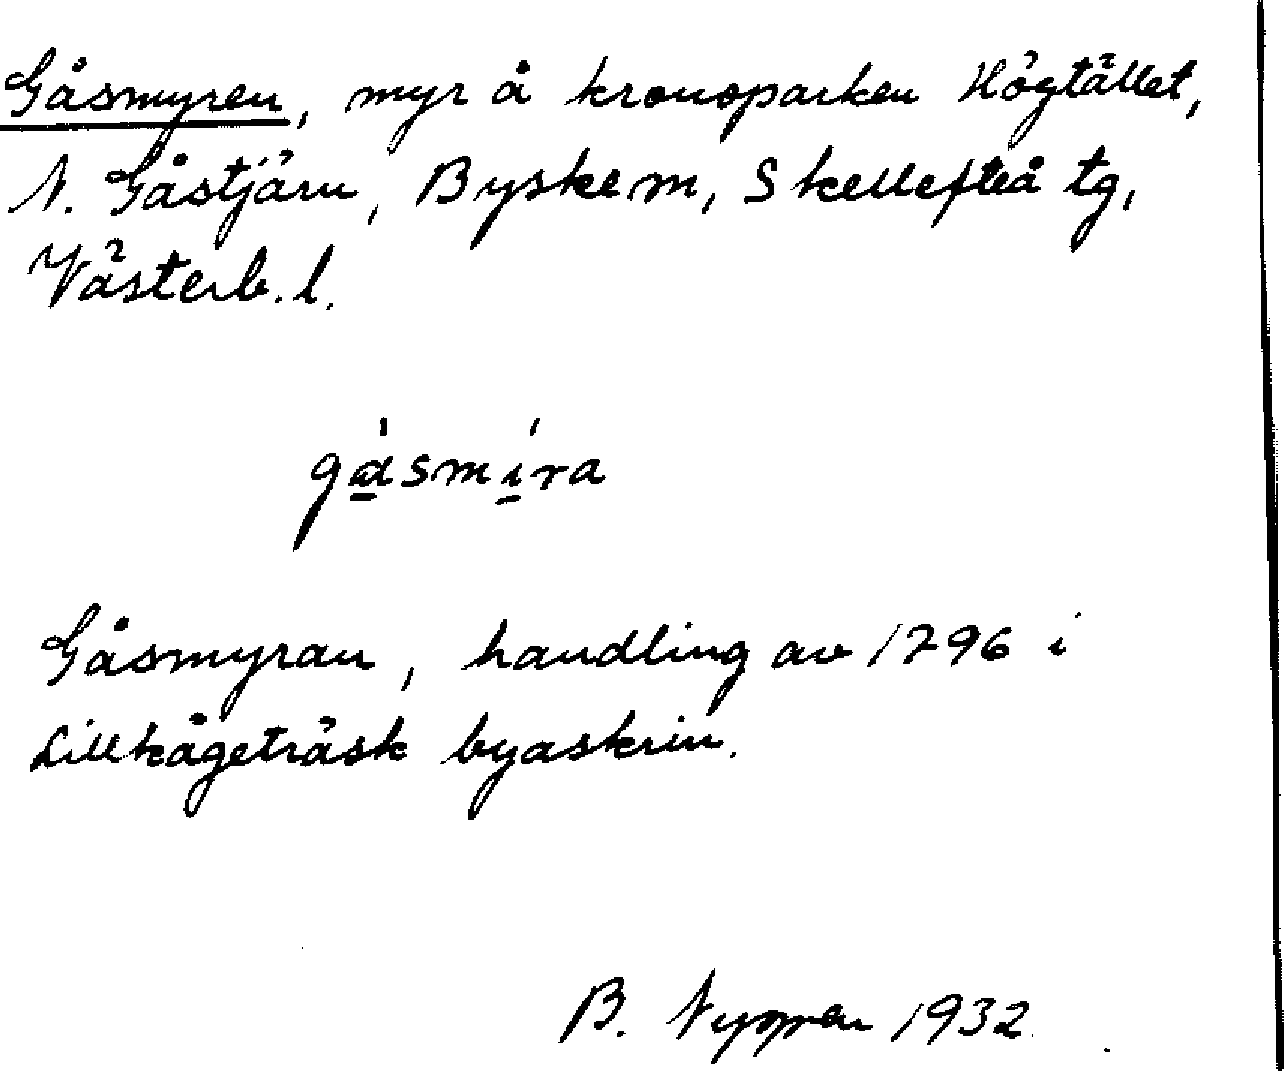 Gåsmyren, myr å kronoparken Högtället,
N. Gåstjärn, Byske m, Skellefteå tg,
Västerb. l.
gásmíra
Gåsmyran, handling av 1796 i
Lillkågeträsk byaskrin.
B. 1932